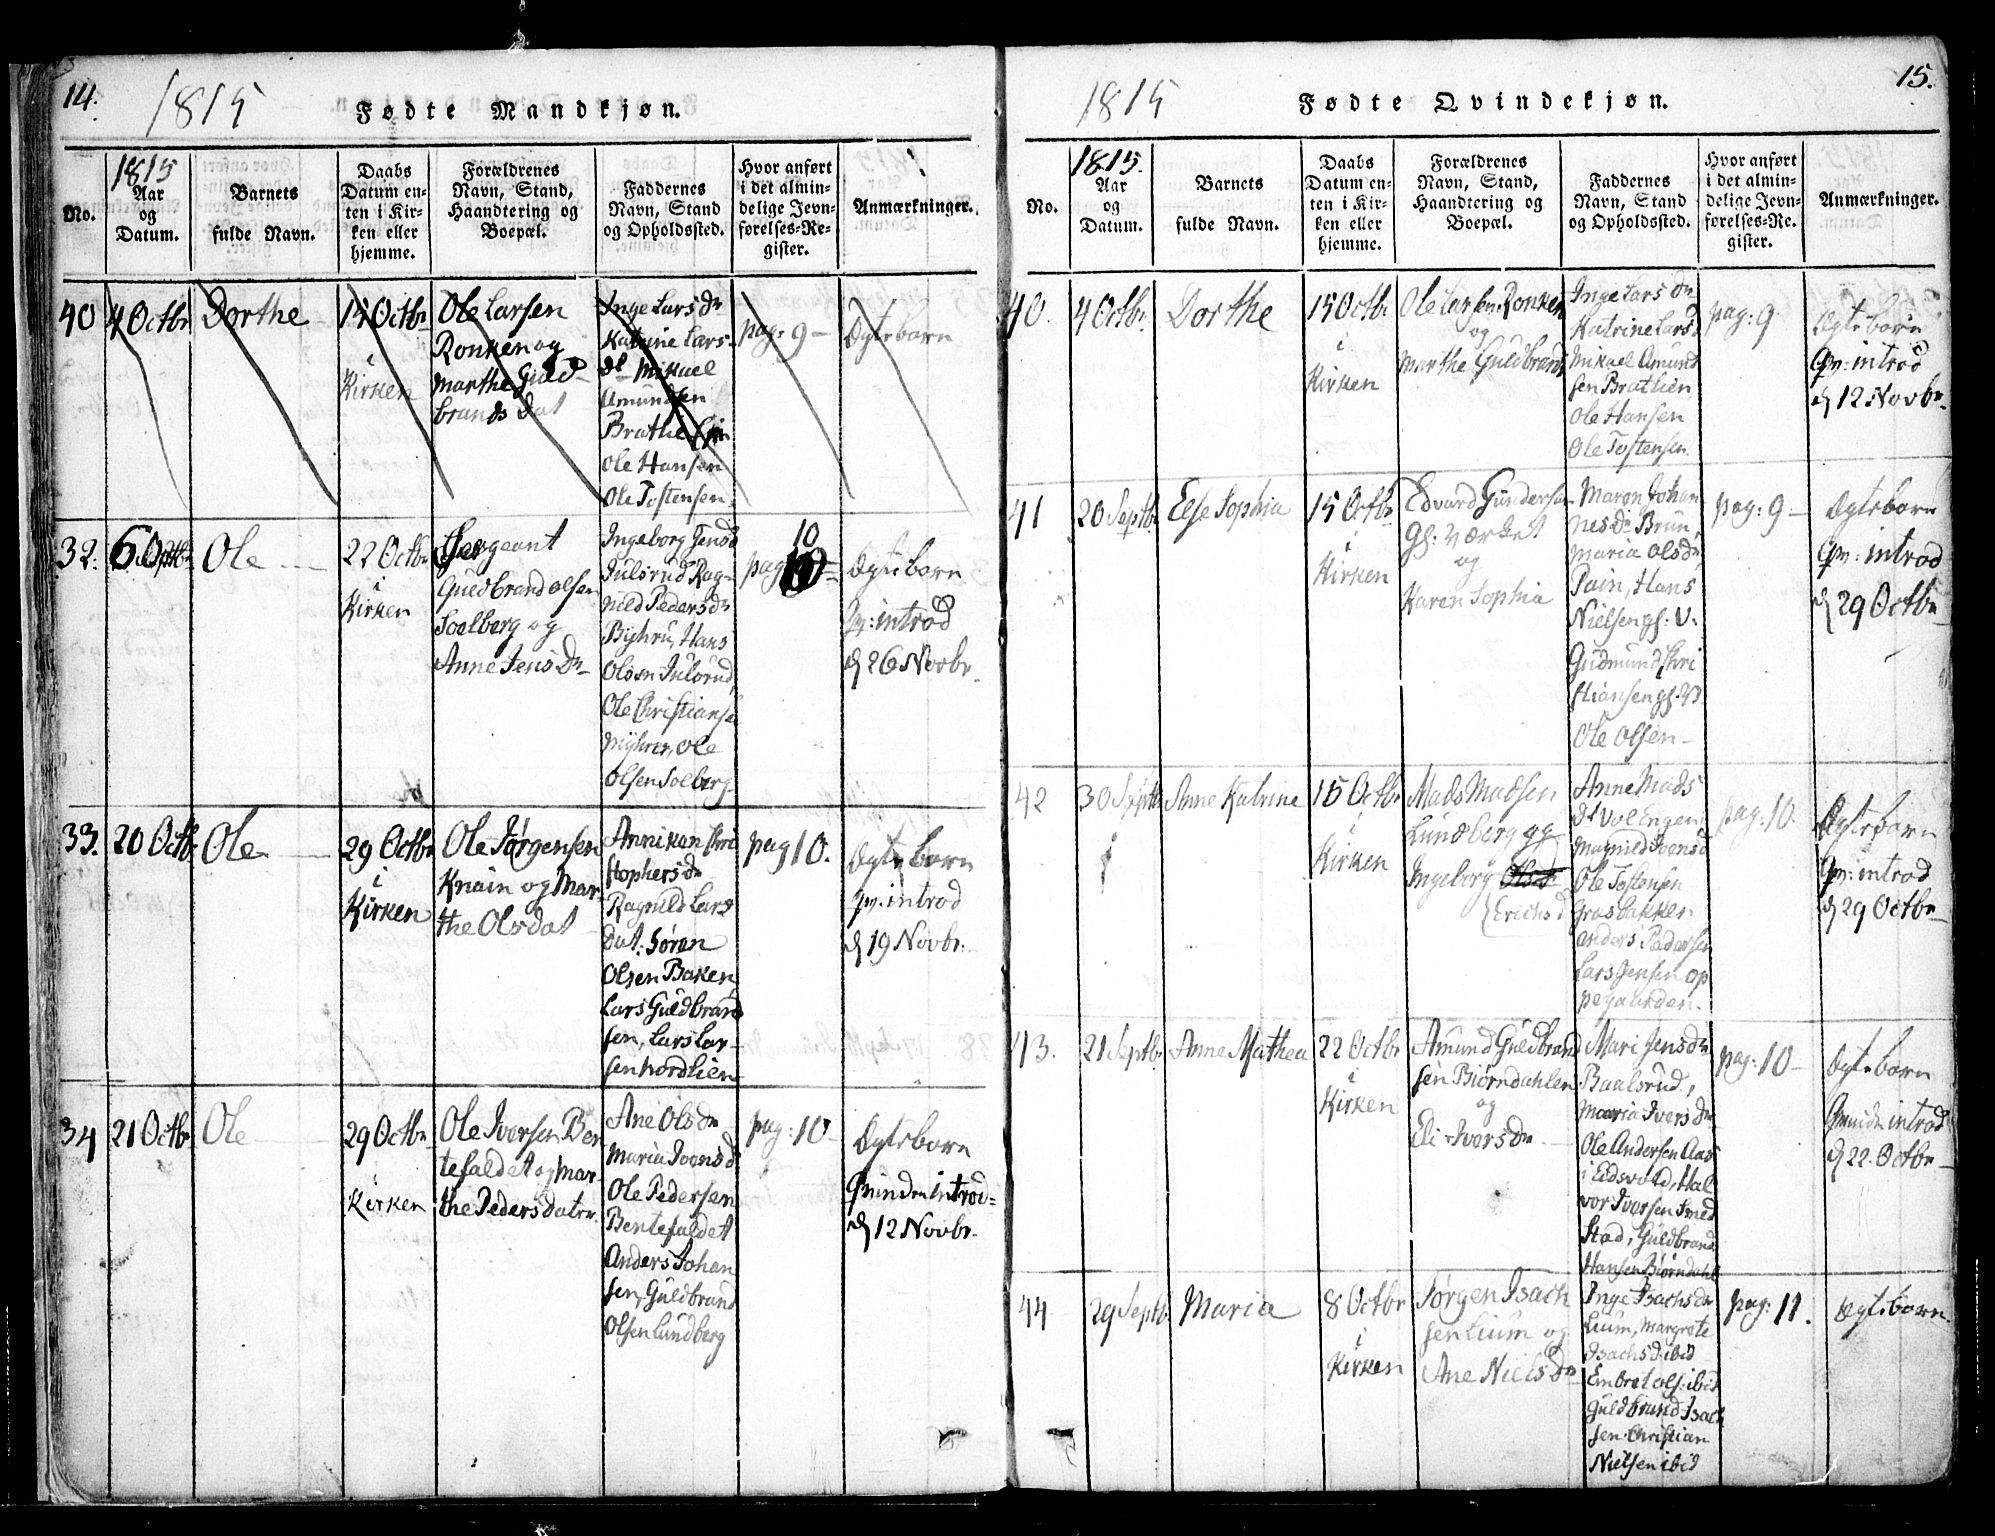 14.
1815
Fødte Mandkjøn.
No.
1815
Aar
og
Datum.
Barnets
fulde Navn.
Daabs
Datum en-
ten i Kir-
ken eller
hjemme.
Forældrenes
Navn, Stand,
Haandtering og
Boepæl.
Faddernes
Navn, Stand
og Opholdssted.
Hvor anført
i det almin-
delige Jevn-
førelses-Re-
gister.
Anmærkninger.
40
4 Octbr
Dorthe
15 Octbr
i
Kirken
Ole Larsen
Ronken og
Marthe Guld-
brands Dat
Inge Lars Dr
Katrine Lars-
dr Mikael
Amundsen
Brathelien
Ole Hansen
Ole Tostensen
pag: 9 -
Ægtebarn
32.
Ole
22 Octbr
i
Kirken
Sergeant
Guldbrand Olsen
Soelberg og
Anne Jens Dr
Ingeborg Jensd
Julsrud Rag-
nild Peders Dr
Hans
Olsen Julsrud,
Ole Christians
Myhrer, Ole
Olsen Solberg
10
pag
Ægtebarn
Qv: introd
d 26 Novbr.
33.
20 Octb
Ole
29 Octbr
i
Kirken
Ole Jørgensen
Knain og Mar-
the Olsdat
Anniken Chri
stophers Dr
Ragnild Lars
Dat. Søren
Olsen Baken
Lars Guldbrand
sen, Lars Lar-
sen Nordlien
pag 10.
Ægtebarn
Qv: introd
d 19 Novbr.
34
21 Octbr
Ole
29 Octbr
i
Kirken
Ole Iversen Ben
tefaldet og Mar-
the Pedersdatr.
Ane Ols Dr
Maria Joensd
Ole Pedersen
Bentefaldet
Anders Johan
sen, Guldbrand
Olsen Lundberg
pag: 10
Ægtebarn
Qvinden introd-
d 12 Novbr.
15.
1815
Fødte Qvindekjøn.
No.
1815.
Aar
og
Datum.
Barnets
fulde Navn.
Daabs
Datum en-
ten i Kir-
ken eller
hjemme.
Forældrenes
Navn, Stand,
Haandtering og
Boepæl.
Faddernes
Navn, Stand
og Opholdssted.
Hvor anført
i det almin-
delige Jevn-
førelses-Re-
gister.
Anmærkninger.
40.
4 Octbr.
Dorthe
15 Octbr
i
Kirken
Ole Larsen Ronken
og
Marthe Guldbrands
Inge Lars Dr
Katrine Lars
Mikael Amund
sen Bratlien
Ole Hansen
Ole Tostensen
pag: 9
Ægtebarn
Qv: introd
d 12 Novbr.
41
20 Septbr
Else Sophia
15 Octbr
i
Kirken
Edvard Gundersen
Gl: Værket
og
Karen Sophia
Maren Johan
nes Dr Brun,
Maria Ols Dr
Pain, Hans
Nielsen gl. V.
Gudmund Chri
stiansen gl. V
Ole Olsen
pag: 9
Ægtebarn
Qv: introd
d 29 Octbr
42
30 Septb
Anne Katrine
15 Octbr
i
Kirken
Mads Madsen
Lundberg, og
Ingeborg
Erichsd
Anne Mads
Dt Volengen
Magnild Joensd
Ole Tostensen
Grasbakken
Anders Pedersen
Lars Jensen Op
pegaarden.
pag: 10.
Ægtebarn
Qv: introd
d 29 Octbr
43.
21 Septbr
Anne Mathea
22 Octbr
i
Kirken
Amund Guldbrand
sen Biørndahlen
og
Eli Ivers Dr
Mari Jens Dr
Baalsrud,
Maria Ivers Dr
Ole Andersen Aas
i Eidsvold, Hal
vor Iversen Smed
Stad, Guldbrand
Hansen Biørndahl
pag: 10
Ægtebarn
Qvinden introd
d 22. Octbr
44
29 Septb.
Maria
8 Octbr
i
Kirken
Jørgen Isach
sen Lium og
Ane Niels Dr
Inge Isachs Dr
Lium, Margrete
Isachsd. ibid
Embret Ols: ibid
Guldbrand Isach
sen. Christian
Nielsen ibid
pag: 11.
Ægtebarn